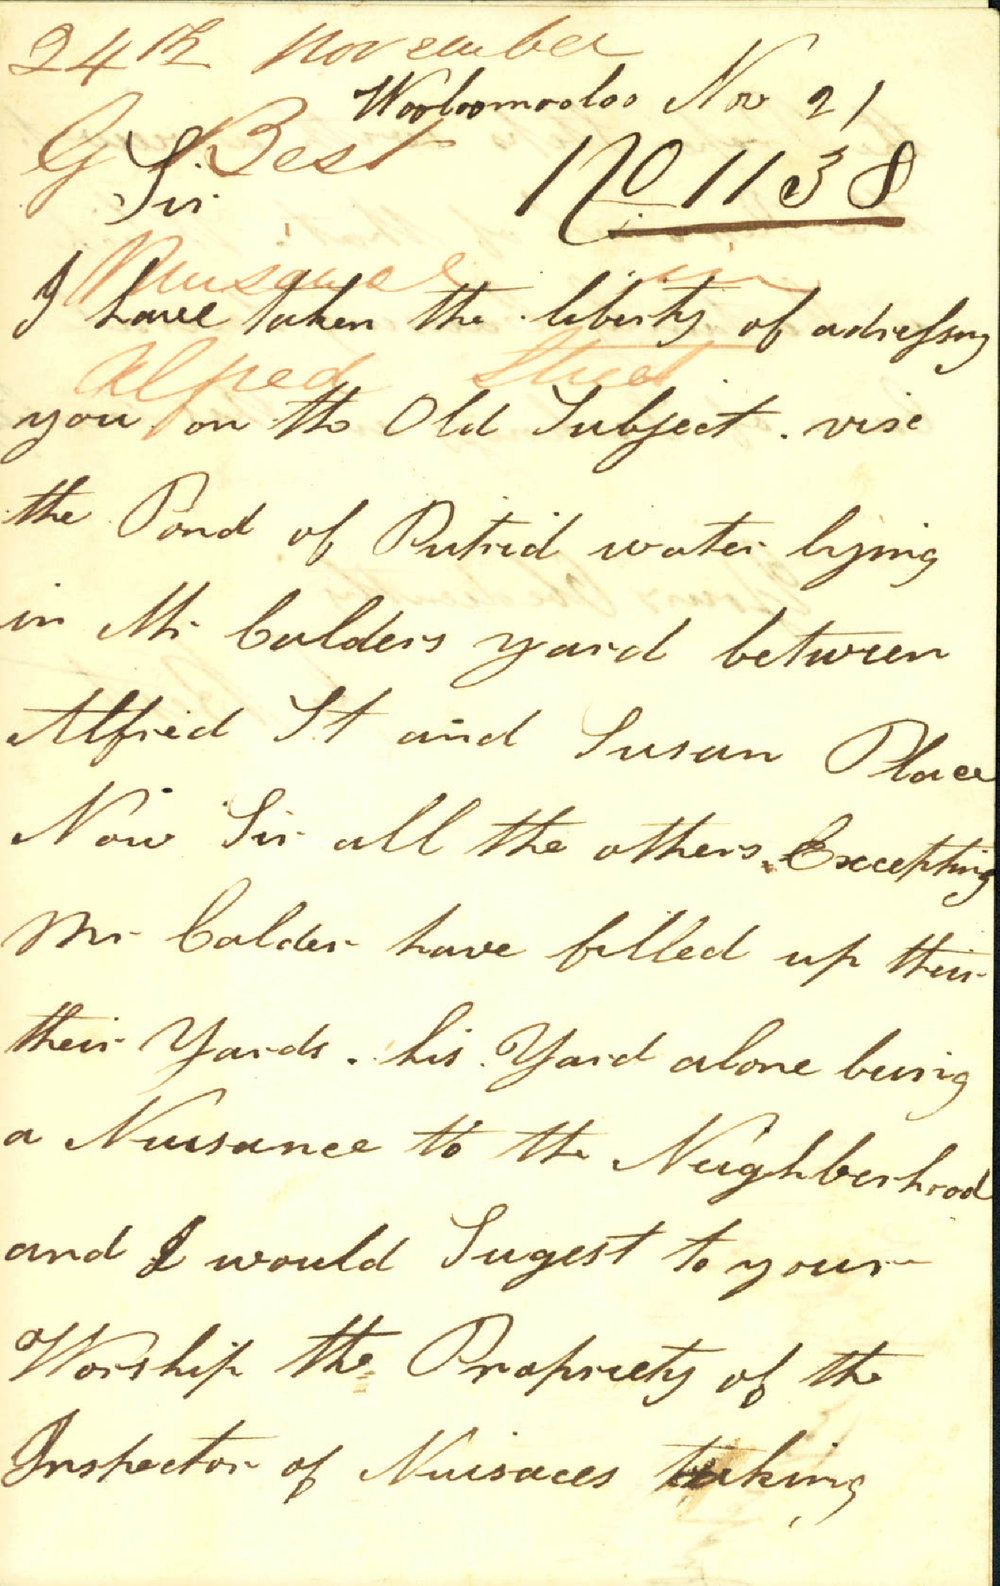 24th November
Wooloomooloo Nov 21
G Best
Sir
No 1138
Nuisance in
I have taken the liberty of adressing
Alfred Street
you on the Old Subject . vise
the Pond of Putrid water lying
in Mr Calders yard between
Alfred St and Susan Place
Now Sir all the others Excepting
Mr Calder have filled up their
their Yards . his Yard alone being
a Nuisance to the Neighberhood
and I would Sugest to your
Worship the Propriety of the
Inspector of Nuisaces taking